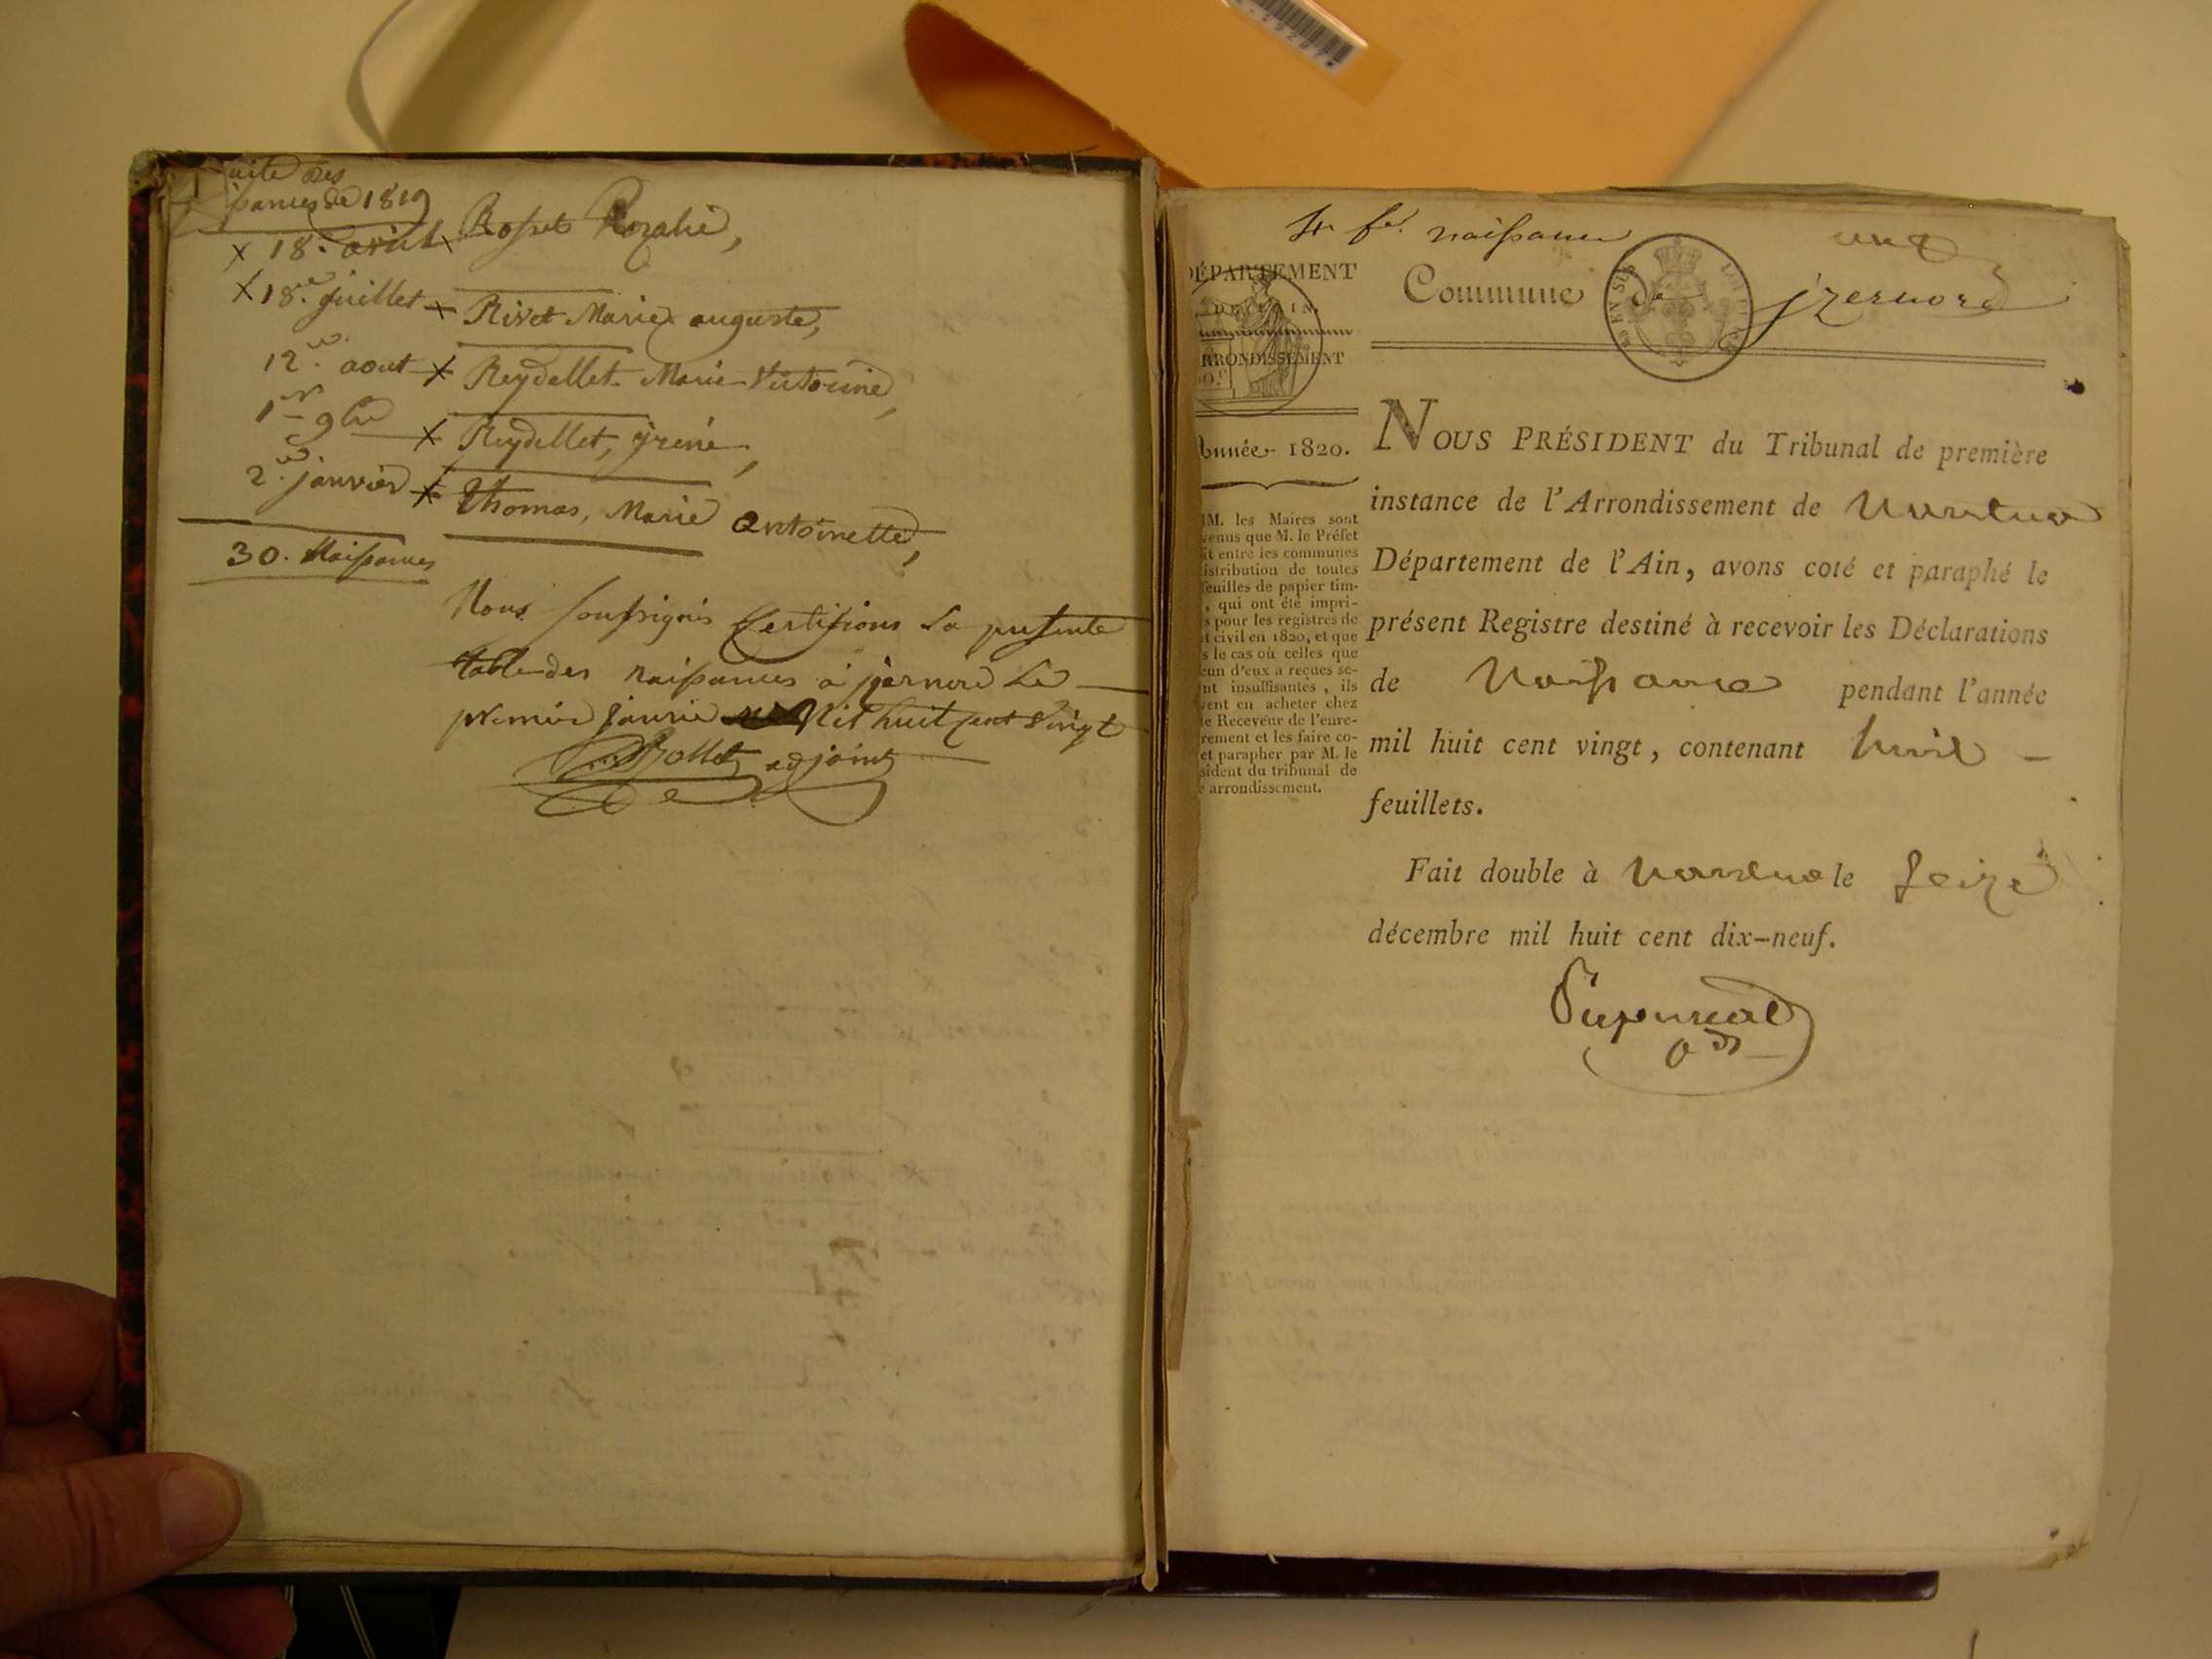 suite des
naissances de 1819
x 18. avril x Rosset Rozalie,
x 18.e juillet x Rivet Marie auguste,
12.e aout x Reydellet Marie Victorine,
1.er 9bre x Reydellet, irené,
2.e janvier x Thomas, Marie Antoinette,
30. Naissances
Nous soussignés certifions la presente
table des naissances à izernore le
premier janvier mil huit cent vingt
adjoint
naissances
une
DÉPARTEMENT
DE L'AIN.
ARRONDISSEMENT
Commune de izernore
Année 1820.
MM. les Maires sont
venus que M. le Préfet
it entre les communes
istribution de toutes
feuilles de papier tim-
, qui ont été impri-
s pour les registres de
t civil en 1820, et que
s le cas où celles que
cun d'eux a reçues se-
nt insuffisantes, ils
vent en acheter chez
le Receveur de l'enre-
rement et les faire co-
et parapher par M. le
sident du tribunal de
arrondissement.
NOUS PRÉSIDENT du Tribunal de première
instance de l'Arrondissement de Nantua
Département de l'Ain, avons coté et paraphé le
présent Registre destiné à recevoir les Déclarations
de Naissance pendant l'année
mil huit cent vingt, contenant huit
feuillets.
Fait double à Nantua le seize
décembre mil huit cent dix-neuf.